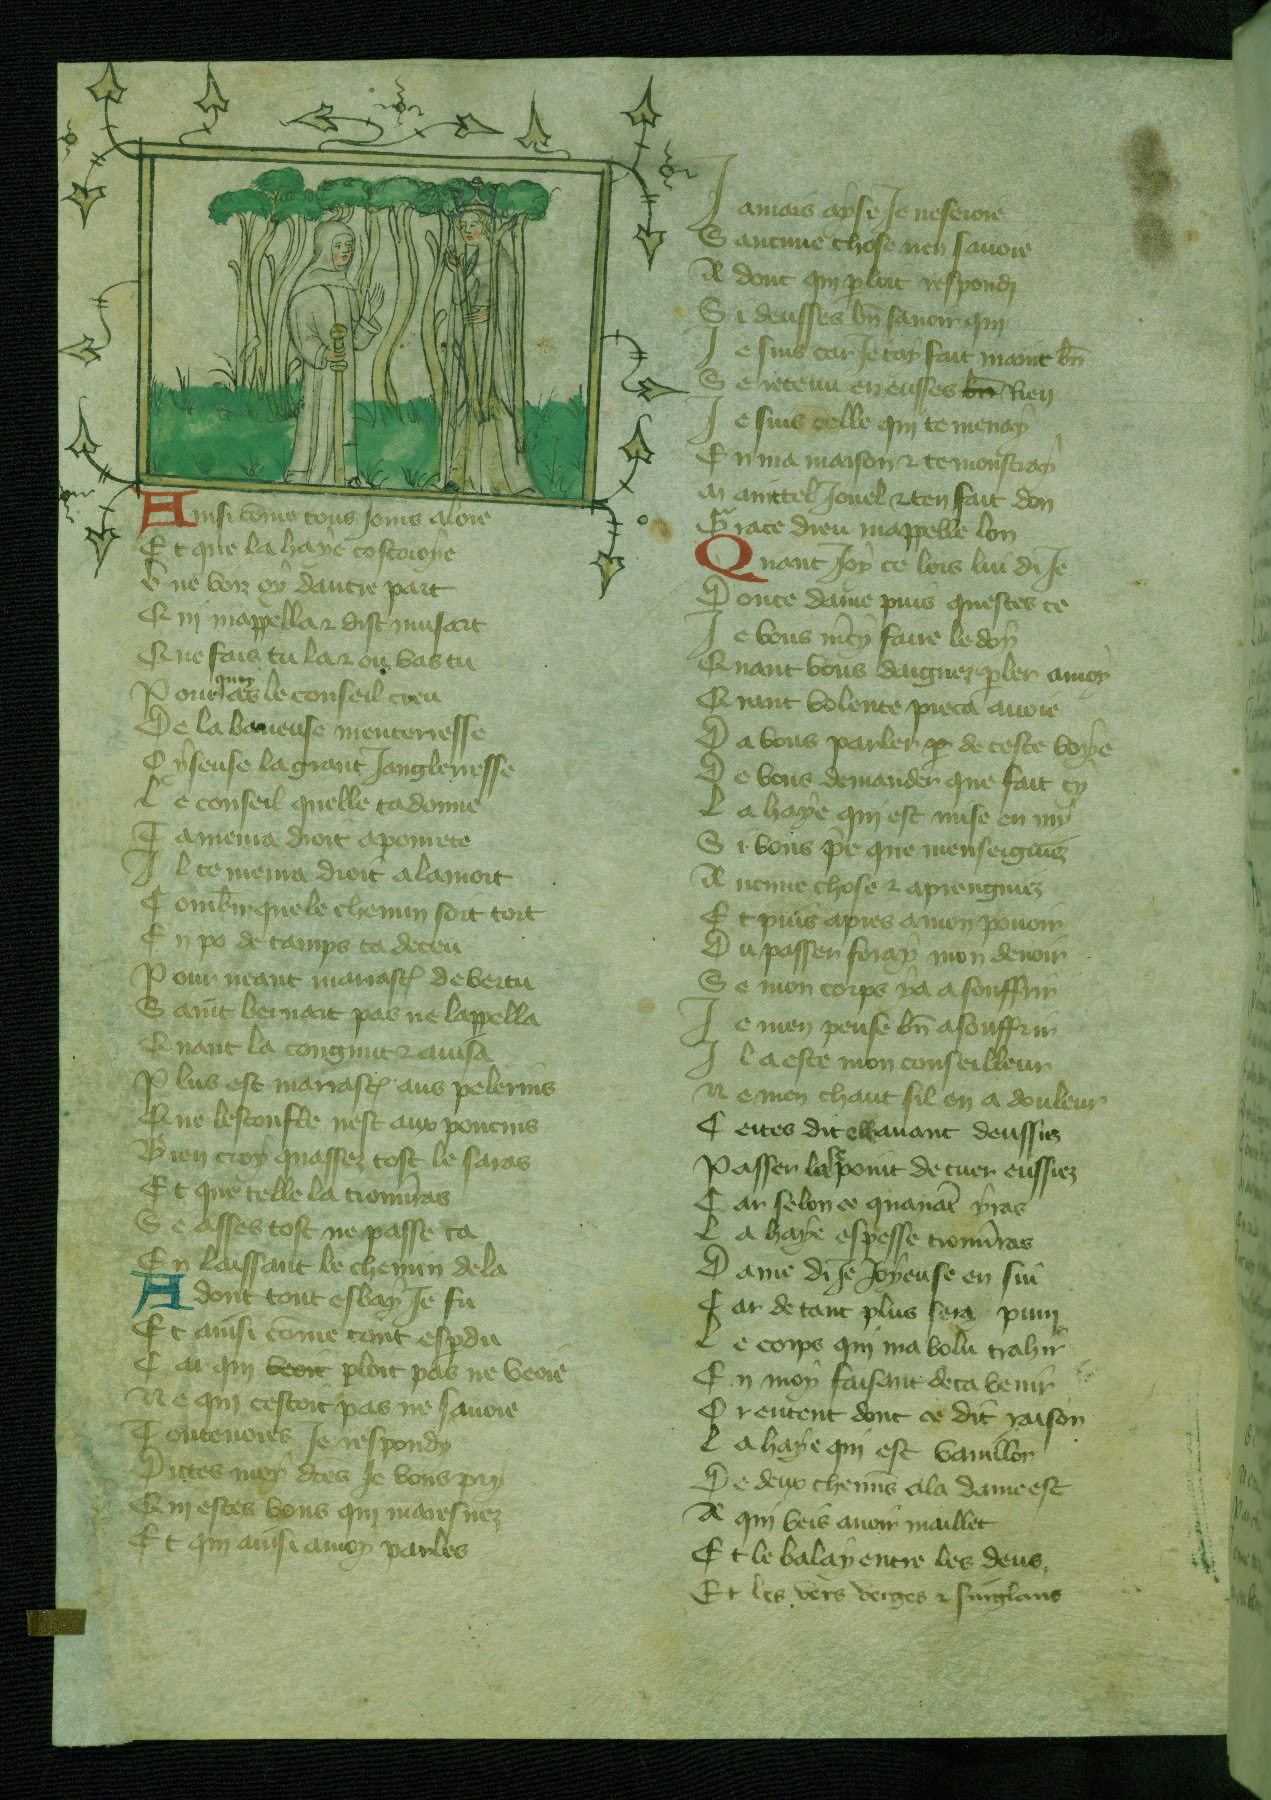 Ainsi cõme tous jours aloie
Et que la haye costoioye
Une voiz oy dautre part
Qui mappella ⁊ dist musart
Que fais tu la ⁊ ou vas tu
Pour quoy as le conseil creu
De la baueuse menterresse
Oyseuse la grant Janglerresse
Le conseil quelle ta donne
Ta menra droit a pourete
Il te menra droit a la mort
Combien que le chemin soit tort
En po de tamps ta deceu
Pour neant marrast̃ de vertu
Saint bernart pas ne lappella
Quant la congnut ⁊ auisa
Plus est marrast̃ aus pelerins
Que lescoufle nest aux poucins
Bien croy quassez tost le saras
Et que telle la trouũras
Se asses tost ne passe ca
En laissant le chemin de la
Adont tout esbay Je fu
Et ausi cõme tout esp̱du
Car qui veoit ploit pas ne veoie
Ne qui cestoit pas ne sauoie
Toutevoies Je respondy
Dittes moy dc̃es Je vous pry
Qui estes vous qui maresnez
Et qui ausi a moy parles
Jamais ayse Je ne seroie
Saucune chose nen sauoie
Adont qui ploit respondi
Si deusses bn̄ sauoir qui
Je suis car Je tay fait maint bn̄
Se retenu en eusses bn̄ Rien
Je suis celle qui te menay
En ma maison ⁊ te monstray
Maint bel Jouel ⁊ ten fait don
Grace dieu mappelle lon
Quant Joy ce lors lui di Je
Douce dame puis questes ce
Je vous mc̃y faire le doy
Quant vous daignez p̱ler a moy
Grant volente pieca auoie
Da vous parler de ceste voye
De vous demander que fait cy
La haye qui est mise en my
Si vous p̃e que menseigniez
Aucune chose ⁊ aprengniez
Et puis apres a mon pouoir
Du passer feray mon deuoir
Se mon corps ya a souffrir
Je men pense bn̄ a souffrir
Il a este mon conseilleur
Ne men chaut sil en a douleur
Certes dit elle auant deussiez
Passer la se point de cuer eussiez
Car selon ce quauãt yras
La haye espesse trouũras
Dame di Je Joyeuse en sui
Car de tant plus sera puni
Le corps qui ma volu trahir
En moy faisant deca venir
Or entent dont ce dit raison
La haye qui est
De deux chemĩs a la dame est
A qui veis auoir maillet
Et le balay entre les deus
Et les vers verges ⁊ singlans